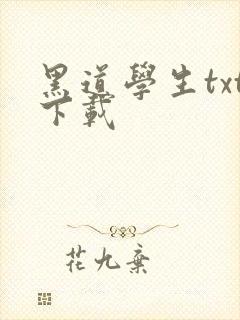 黑道學生txt
下載
花九棄